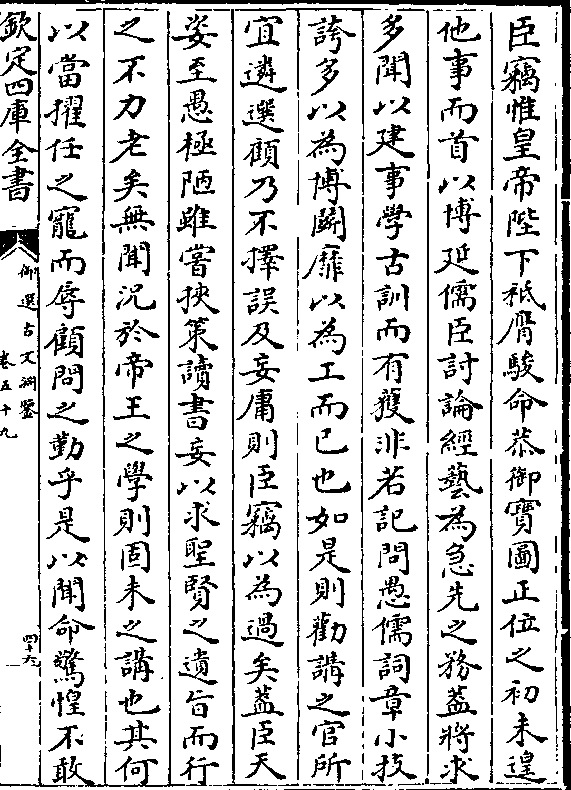 臣竊惟皇帝陛下祗膺駿命恭御寶圖正位之初未遑
他事而首以博延儒臣討論經藝為急先之務蓋將求
多聞以建事學古訓而有獲非若記問愚儒詞章小技
誇多以為博鬭靡以為工而已也如是則勸講之官所
宜遴選顧乃不擇誤及妄庸則臣竊以為過矣蓋臣天
姿至愚極陋雖嘗挾策讀書妄以求聖賢之遺旨而行
之不力老矣無聞況於帝王之學則固未之講也其何
以當擢任之寵而辱顧問之勤乎是以聞命驚惶不敢
欽定四庫全書
御選古文淵鑒
卷五十九